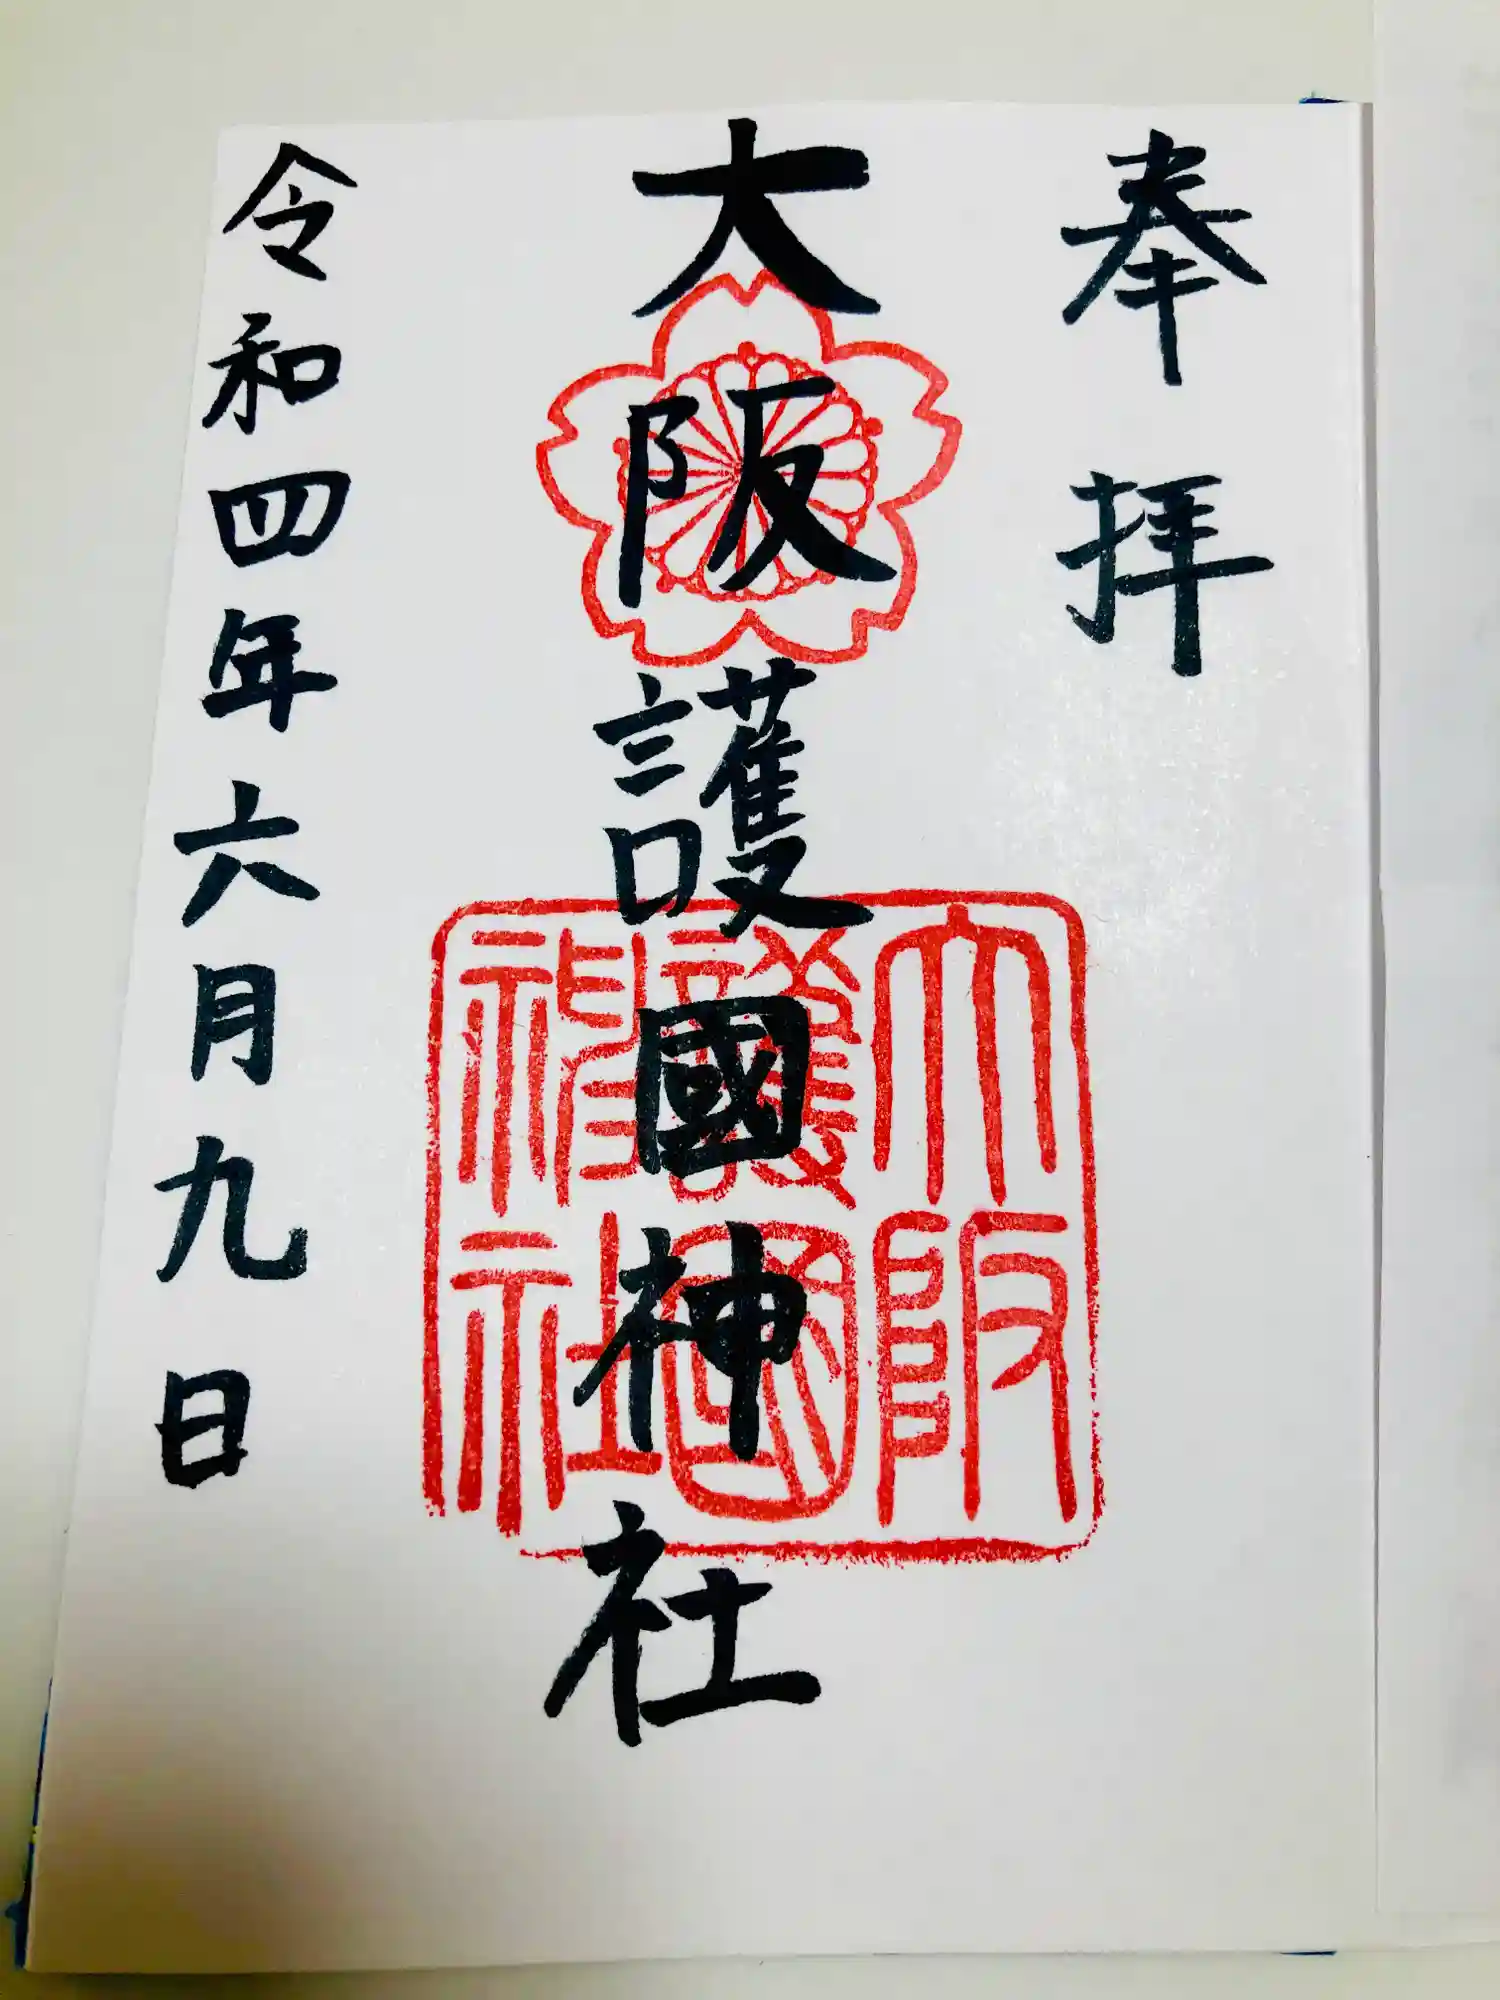 奉拝
大阪護國神社
大阪護國神社
令和四年六月九日